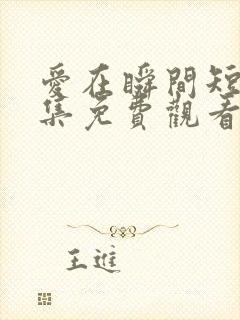 愛在瞬間短
集免費觀看
王進